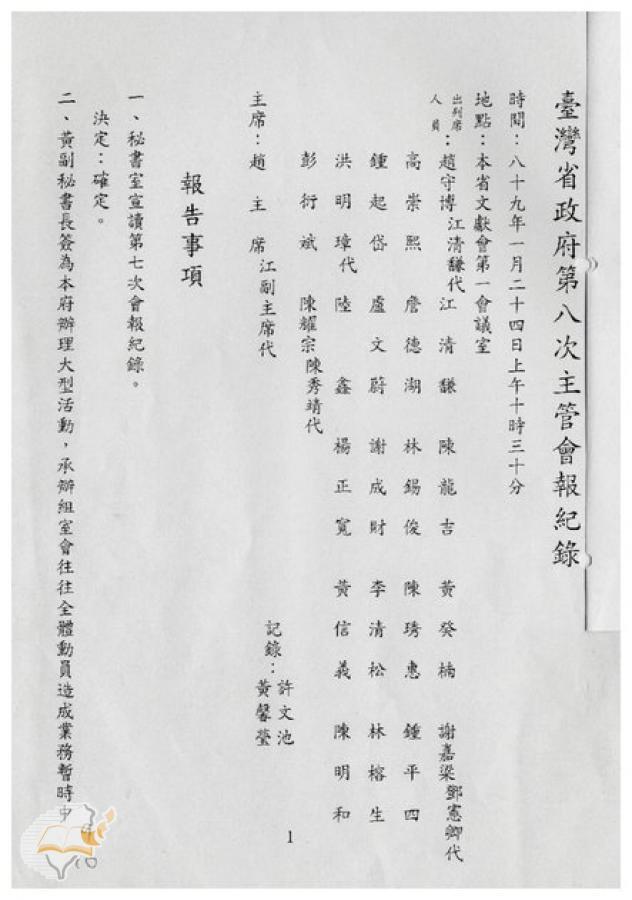 臺灣省政府第八次主管會報紀錄
時間：八十九年一月二十四日上午十時三十分
地點：本省文獻會第一會議室
出列席人員：趙守博江清馦代 江清馦 陳龍吉 黃癸楠 謝嘉梁鄧憲卿代
高崇熙 詹德湖 林錫俊 陳琇惠 鍾平四
鍾起岱 盧文蔚 謝成財 李清松 林榕生
洪明璋代 陸鑫 楊正寬 黃信義 陳明和
彭衍斌 陳耀宗陳秀靖代
主席：趙主席江副主席代
記錄：許文池
黃馨瑩
報告事項
一、秘書室宣讀第七次會報紀錄。
決定：確定。
二、黃副秘書長簽為本府辦理大型活動，承辦組室會往往全體動員造成業務暫時中
1